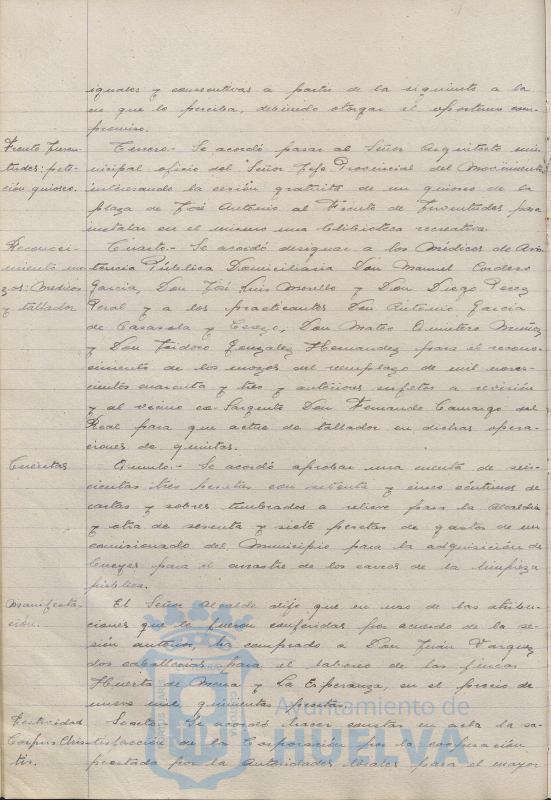 iguales y consecutivas a partir de la siguiente a la
en que lo perciba, debiendo otorgar el oportuno com-
promiso.
Frente Juven-
tudes: peti-
ción quiosco.
Tercero.- Se acordó pasar al Señor Arquitecto mu-
nicipal oficio del Señor Jefe Provincial del Movimiento
interesando la cesión gratuita de un quiosco de la
plaza de José Antonio al Frente de Juventudes para
instalar en el mismo una biblioteca recreativa.
Reconoci-
miento mo-
zos: Medicos
y tallador
Cuarto.- Se acordó designar a los Médicos de Asis-
tencia Pública Domiciliaria Don Manuel Cordero
García, Don José Luis Morillo y Don Diego Perez
Peral y a los practicantes Don Antonio Garcia
de Casasola y Don Mateo Muñoz
y Don Isidoro Gonzalez Hernandez para el recono-
cimiento de los mozos del remplazo de mil nove-
cientos cuarenta y tres y anteriores sujetos a revisión
y al vecino ex-Sargento Don Fernando Camargo del
Real para que actue de tallador en dichas opera-
ciones de quintas.
Cuentas
Quinto.- Se acordó aprobar una cuenta de seis-
cientas tres pesetas con setenta y cinco céntimos de
cartas y sobres timbrados a relieve para la Alcaldía
y otra de sesenta y siete pesetas de gastos de un
comisionado del Municipio para la adquisición de
bueyes para el arrastre de los carros de la limpieza
pública.
Manifesta-
ción.
El Señor Alcalde dijo que en uso de las atribu-
ciones que le fueron conferidas por acuerdo de la se-
sión anterior, ha comprado a Don Juan Vazquez
dos caballerias para el laboreo de las fincas
Huerta de Mena y La Esperanza, en el precio de
nueve mil quinientas pesetas.
Festividad
Corpus Chris-
tis.
Sexto.- Se acordó hacer constar en acta la sa-
tisfacción de la Corporación por la cooperación
prestada por la Autoridades locales para el mayor
Ayuntamiento de
HUELVA